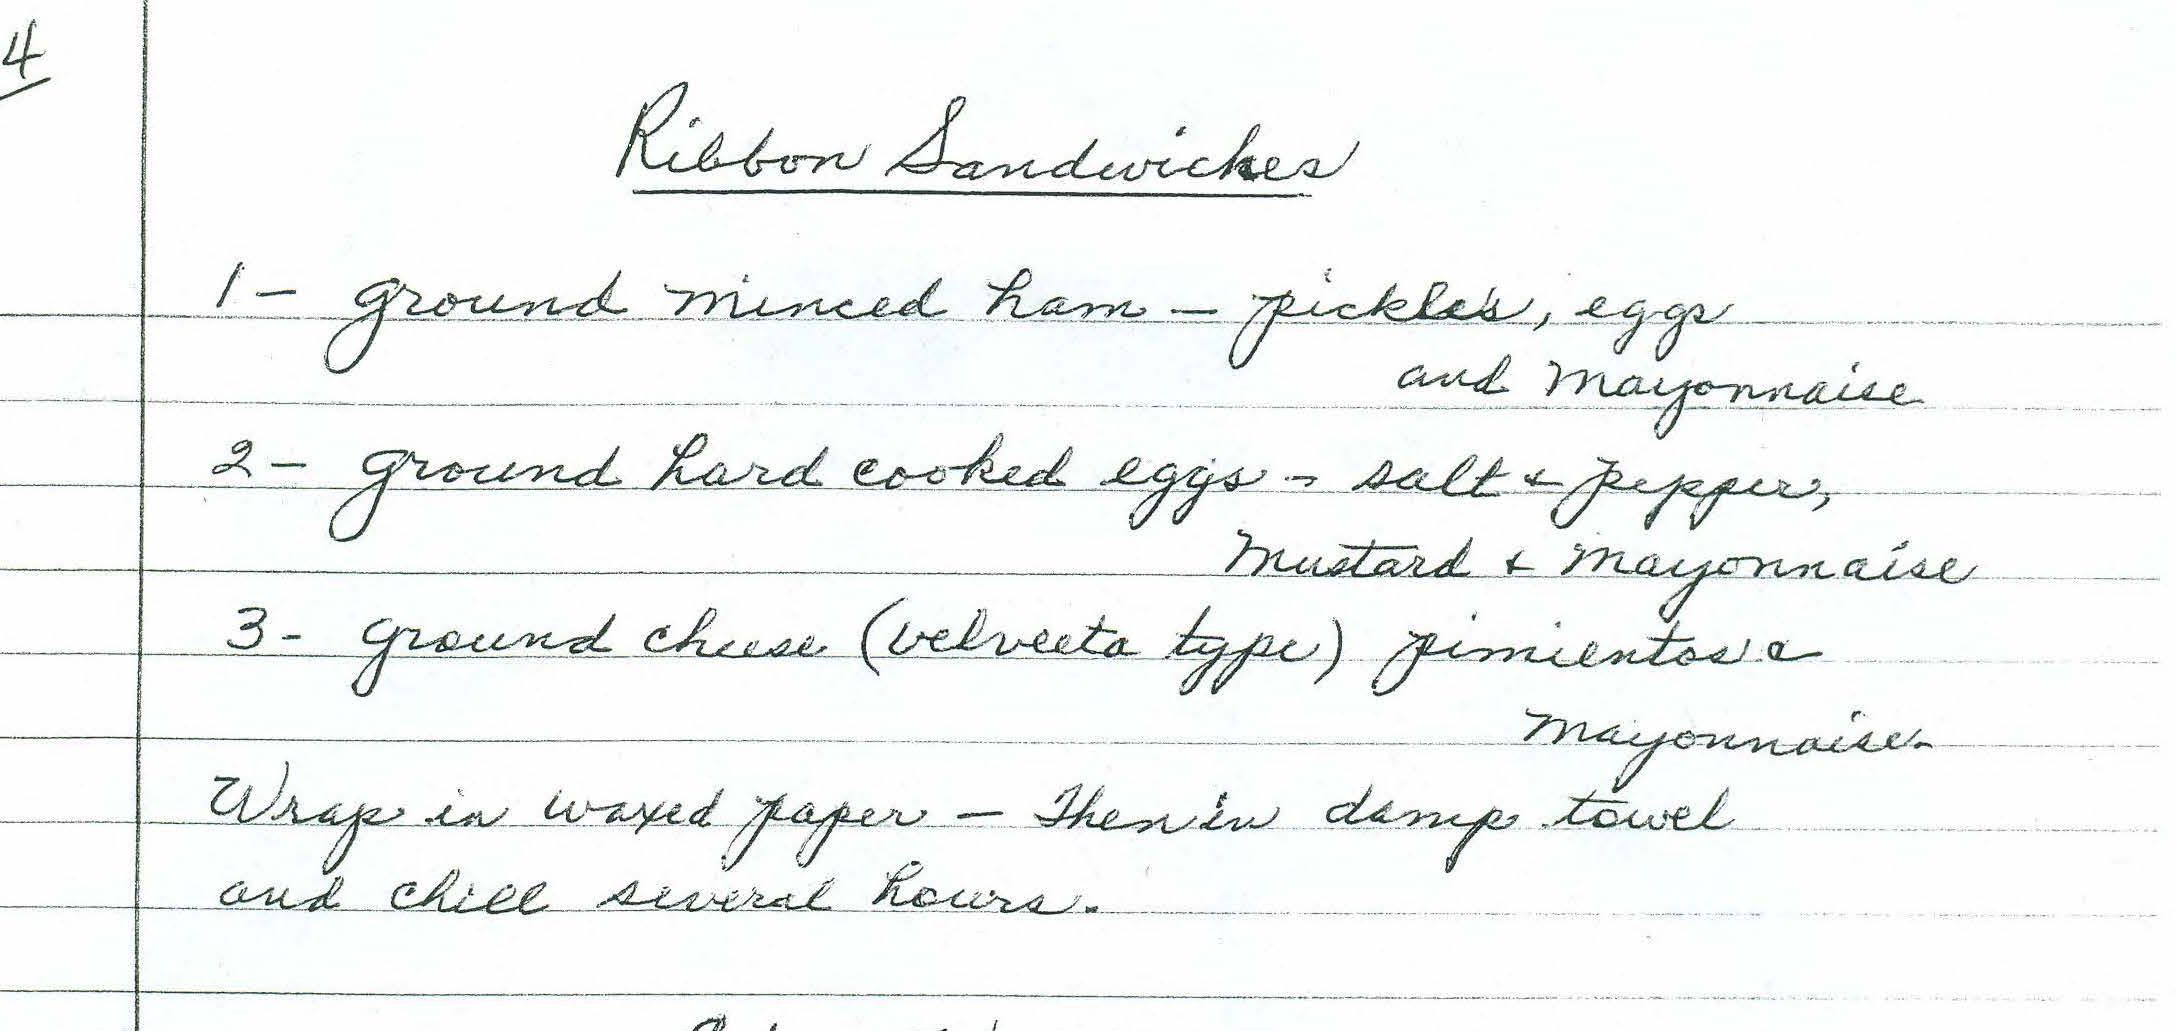 4
Ribbon Sandwiches
1 - ground minced ham - pickles, eggs
and Mayonnaise
2 - ground hard cooked eggs - salt & pepper,
Mustard & Mayonnaise
3 - ground cheese (velveeta type) pimientos &
Mayonnaise.
Wrap in waxed paper - Then in damp towel
and chill several hours.